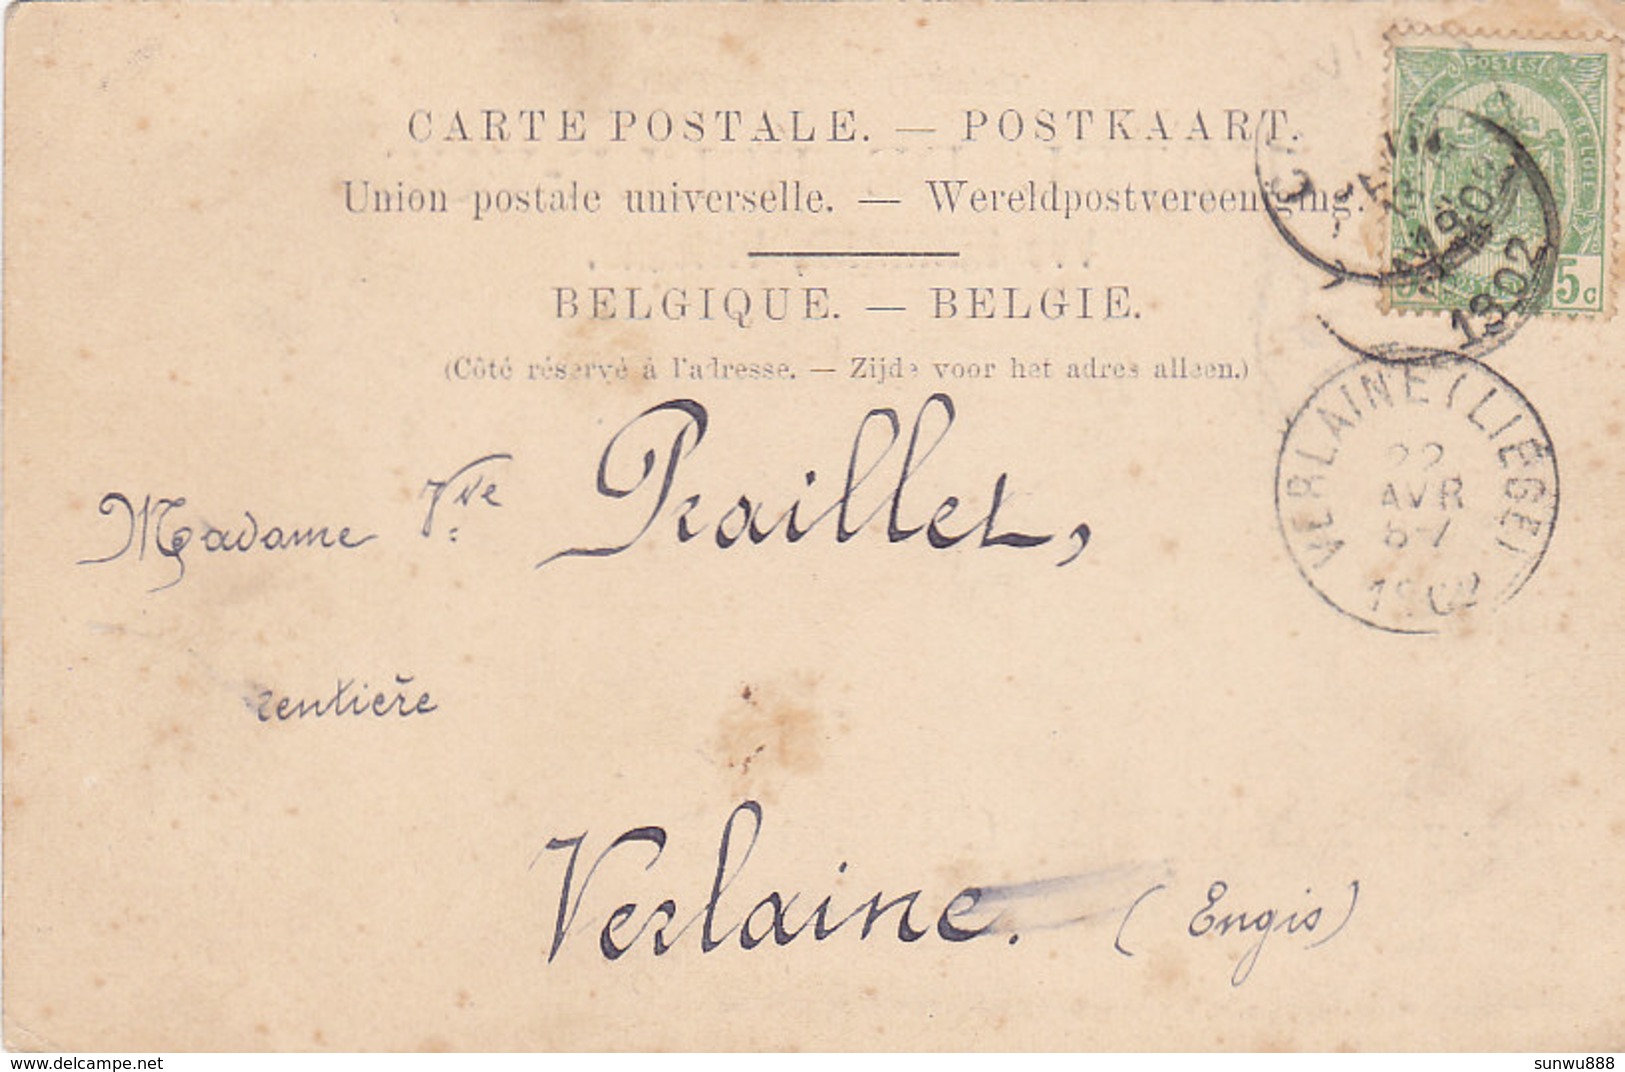 CARTE POSTALE. — POSTKAART.
Union postale universelle. — Wereldpostvereeniging.
BELGIQUE. — BELGIE.
(Côté réservé à l'adresse. — Zijde voor het adres alleen.)
POSTES
BELGIE
5c
1902
VERLAINE (LIEGE)
22
AVR
1902
Madame Vve Praillet,
rentière
Verlaine. (Engis)
delcampe.net
sunwu888